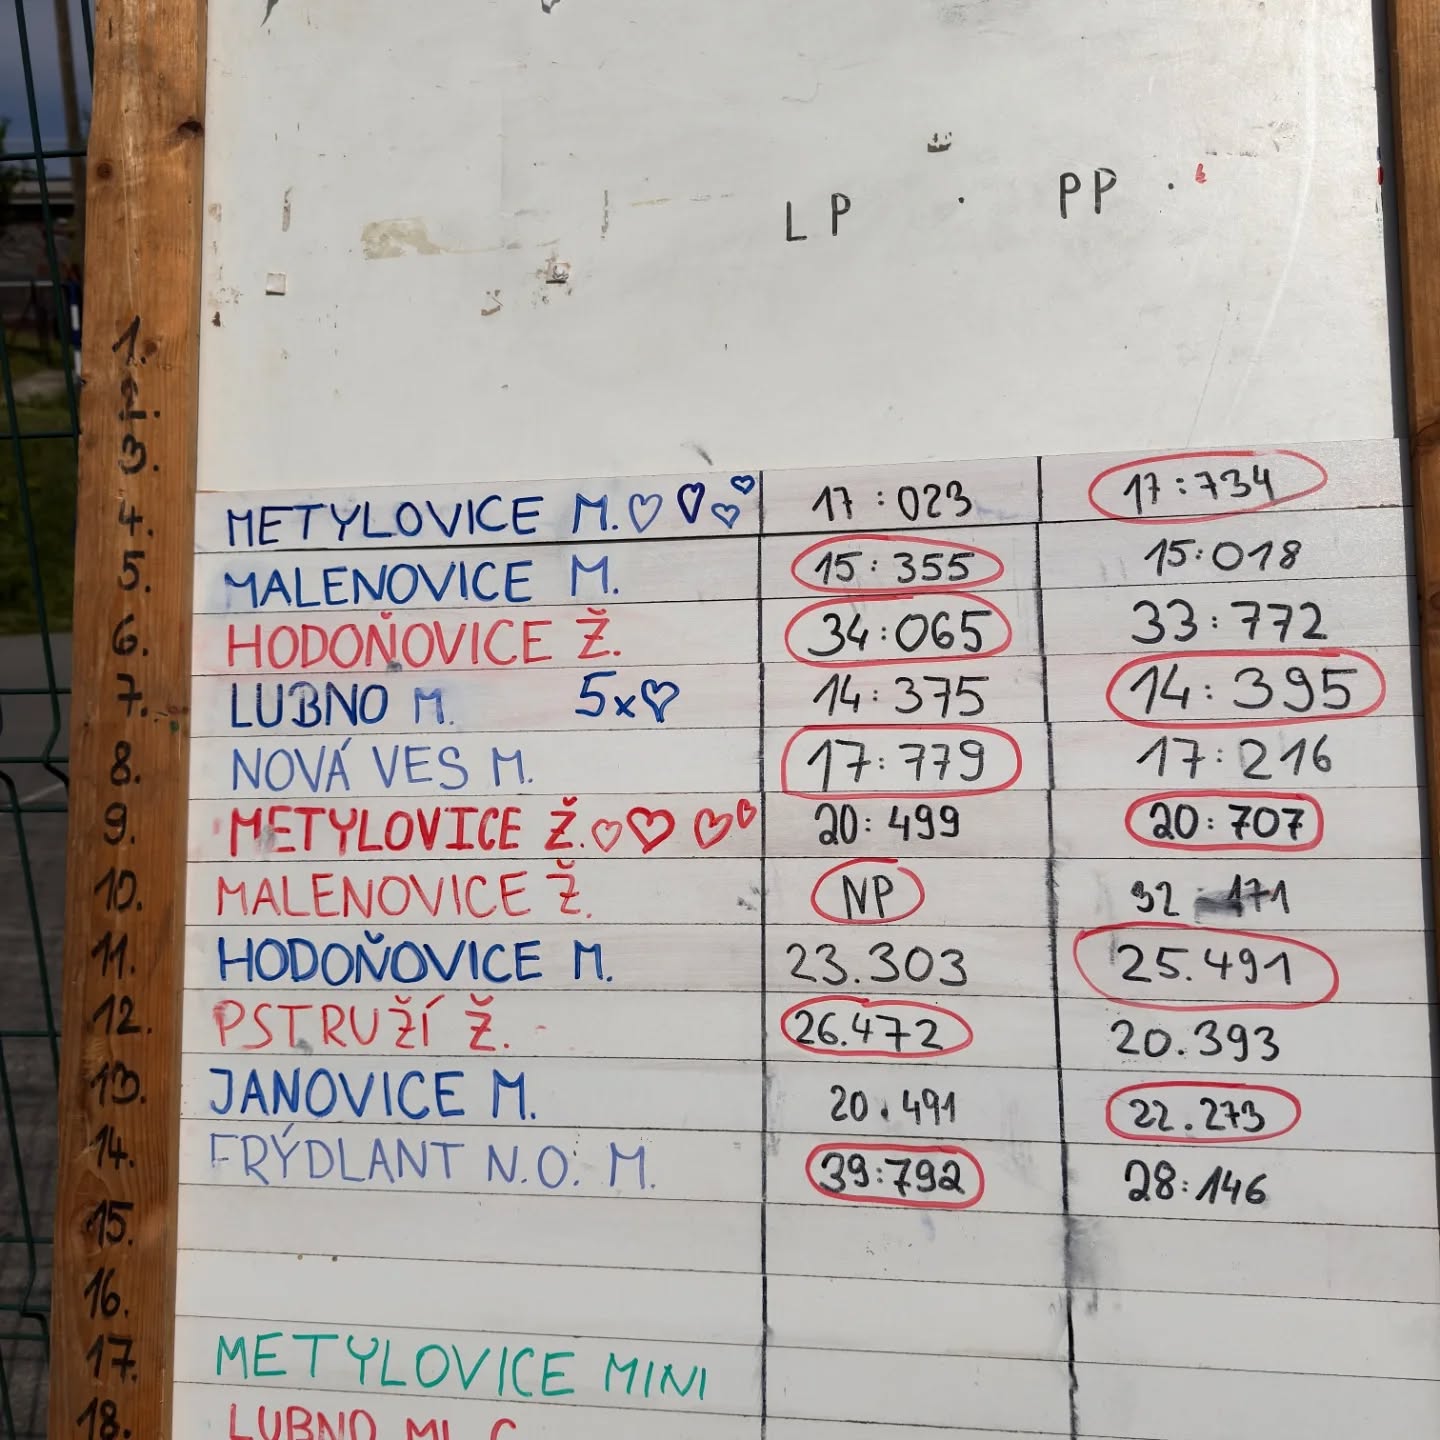 LP . PP .
1.
2.
3.
4. METYLOVICE M. 17:023 17:734
5. MALENOVICE M. 15:355 15:018
6. HODOŇOVICE Ž. 34:065 33:772
7. LUBNO M. 5x 14:375 14:395
8. NOVÁ VES M. 17:779 17:216
9. METYLOVICE Ž. 20:499 20:707
10. MALENOVICE Ž. NP 171
11. HODOŇOVICE M. 23.303 25.491
12. PSTRUŽÍ Ž. 26.472 20.393
13. JANOVICE M. 20.491 22.273
14. FRÝDLANT N.O. M. 39:792 28:146
15.
16.
17. METYLOVICE MINI
18. LUBNO